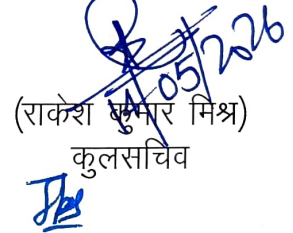 14/05/2026
(राकेश कुमार मिश्र)
कुलसचिव